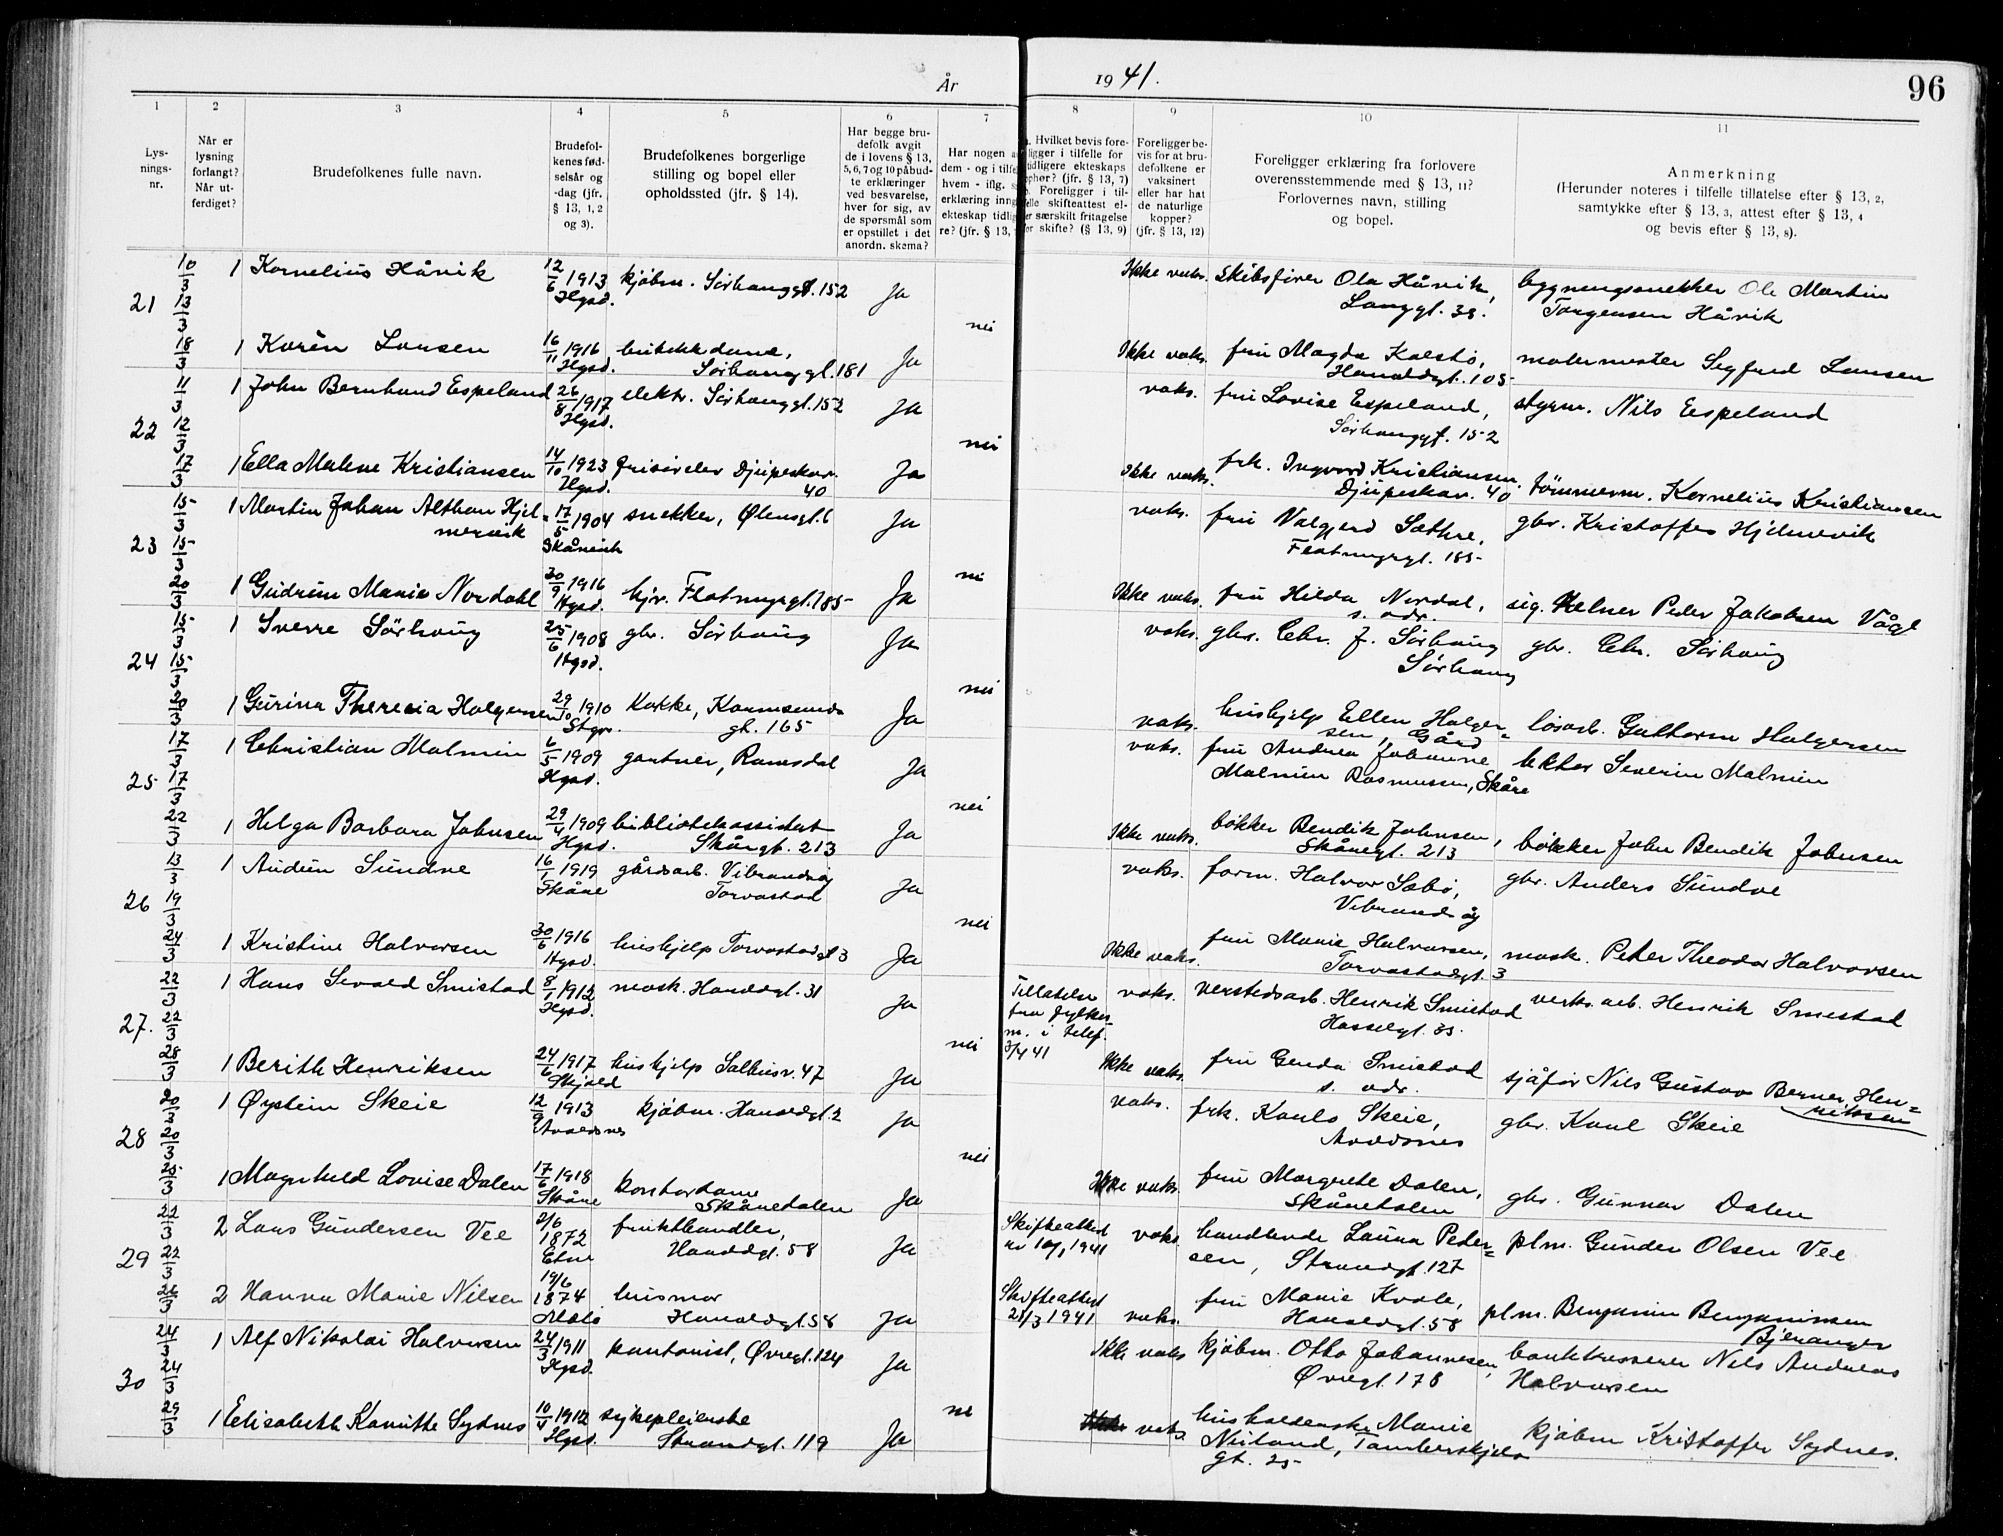 År 1941.
96
1 2 3 4 5 6 7 8 9 10 11
Lys-
nings-
nr.
Når er
lysning
forlangt?
Når ut-
ferdiget?
Brudefolkenes fulle navn.
Brudefol-
kenes fød-
selsår og
-dag (jfr.
§ 13, 1, 2
og 3).
Brudefolkenes borgerlige
stilling og bopel eller
opholdssted (jfr. § 14).
Har begge bru-
defolk avgit
de i lovens § 13,
5, 6, 7 og 10 påbud-
te erklæringer
ved besvarelse,
hver for sig, av
de spørsmål som
er opstillet i det
anordn. skema?
Har nogen
dem - og i tilfe
hvem - iflg.
erklæring inng
ekteskap tidlig
re? (jfr. § 13,
Hvilket bevis fore-
ligger i tilfelle for
tidligere ekteskaps
ophør? (jfr. § 13, 7)
Foreligger i til-
felle skifteattest el-
er særskilt fritagelse
for skifte? (§ 13, 9)
Foreligger be-
vis for at bru-
defolkene er
vaksinert
eller har hat
de naturlige
kopper?
(jfr. § 13, 12)
Foreligger erklæring fra forlovere
overensstemmende med § 13, 11?
Forlovernes navn, stilling
og bopel.
Anmerkning
(Herunder noteres i tilfelle tillatelse efter § 13, 2,
samtykke efter § 13, 3, attest efter § 13, 4
og bevis efter § 13, 8).
21 10/3 13/3 1 Kornelius Håvik 12/6 1913 kjøbm. Sørhauggt. 152 Ja Ikke vaks. skibsfører Ola Håvik, bygningssnekker Ole Martin
Hgsd. Langgt. 38. Torgensen Håvik
nei
18/3 1 Karen Lansen 16/11 1916 butikkdame, Ja Ikke vaks. fru Magda Kalstø, malermester Sigfred Lansen
Hgsd. Sørhauggt. 181 Haraldsgt. 105
22 11/3 12/3 1 John Bernhard Espeland 26/8 1917 elektr. Sørhauggt. 152 Ja vaks. fru Lovise Espeland, styrm. Nils Espeland
Hgsd. Sørhauggt. 152
nei
17/3 1 Ella Malene Kristiansen 14/10 1923 frisørelev Djupeskar. Ja Ikke vaks. frk. Ingvord Kristiansen. tømmerm. Kornelius Kristiansen
Hgsd. 40 Djupeskar. 40
23 15/3 15/3 1 Martin Johan Althan Hjel- 17/5 1904 snekker, Ølensgt. 6 Ja vaks. fru Valgerd Sæthre, gbr. Kristoffer Hjelmervik
mervik Skånevik Flotmyrgt. 185
nei
20/3 1 Gudrun Marie Nordahl 30/9 1916 hjv. Flotmyrgt. 185 Ja Ikke vaks. fru Hilda Nordal, sig. Helner Peder Jakobsen Våge
Hgsd. s. adr.
24 15/3 15/3 1 Sverre Sørhaug 25/6 1908 gbr. Sørhaug Ja vaks. gbr. Chr. J. Sørhaug gbr. Chr. Sørhaug
Hgsd. Sørhaug
nei
20/3 1 Gurina Theresia Holgersen 29/10 1910 Kokke, Karmsunds Ja vaks. hushjelp Ellen Holger- løsarb. Guttorm Holgersen
gt. 165 sen, Gård
25 17/3 17/3 1 Christian Malmin 6/5 1909 gartner, Ramsdal Ja vaks. fru Andrea Johanne lektor Severin Malmin
Hgsd. Malmin Rasmussen, Skåre
nei
22/3 1 Helga Barbara Johnsen 29/4 1909 bibliotekassistent Ja Ikke vaks. bøkker Bendik Johnsen, bøkker John Bendik Johnsen
Hgsd. Skåregt. 213 Skåregt. 213
26 13/3 19/3 1 Audun Sundve 16/1 1919 gårdsarb. Vibrandsøy Ja vaks. form. Halvor Sæbø, gbr. Anders Sundve
Skåre Torvastad Vibrandsøy
nei
24/3 1 Kristine Halvorsen 30/6 1916 hushjelp Torvastadgt 3 Ja Ikke vaks. fru Marie Halvorsen, mask. Peter Theodor Halvorsen
Hgsd. Torvastadgt. 3
27. 22/3 22/3 1 Hans Sevald Smistad 8/1 1912 mask. Haraldsgt. 31 Ja Tillatelse vaks. verkstedsarb. Henrik Smistad verks. arb. Henrik Smestad
Hgsd. fra fylkes- Hasselgt. 35.
m. i telef.
nei 3/4 41
28/3 1 Berith Henriksen 24/6 1917 hushjelp Salhusv. 47 Ja Ikke vaks. fru Gerda Smistad sjåfør Nils Gustav Berner Hen=
Skjold s. adr. riksen
28 20/3 20/3 1 Øystein Skeie 12/9 1913 kjøbm. Haraldsgt. 2 Ja vaks. frk. Karla Skeie, gbr. Karl Skeie
Avaldsnes Avaldsnes
nei
25/3 1 Magnhild Lovise Dalen 17/6 1918 kontordame Ja Ikke vaks. fru Margrete Dalen, gbr. Gunnar Dalen
Skåre Skåredalen Skåredalen
29 22/3 22/3 2 Lars Gundersen Vee 2/6 1872 frukthandler, Ja Skifteattest vaks. handlende Laura Peder= plm. Gunder Olsen Vee
Etne Haraldsgt. 58 sen, Strandgt. 127
26/3 2 Hanna Marie Nilsen 19/6 1874 husmor Ja Skifteattest vaks. fru Marie Kvale, plm. Benjamin Benjaminsen
Haraldsgt. 58 21/3 1941 Haraldsgt. 58 Bjeranger
30 24/3 24/3 1 Alf Nikolai Halvorsen 24/3 1911 kontorist, Øvregt. 124 Ja Ikke vaks kjøbm. Otto Johannesen, bankkasserer Nils Andreas
Hgsd. Øvregt. 178 Halvorsen
nei
29/3 1 Elisabeth Kamitte Sydnes 10/4 1912 sykepleierske Ja vaks. husholderske Marie kjøbm Kristoffer Sydnes.
Hgsd. Strandgt. 119 Neiland, Tamberskjels
gt. 25